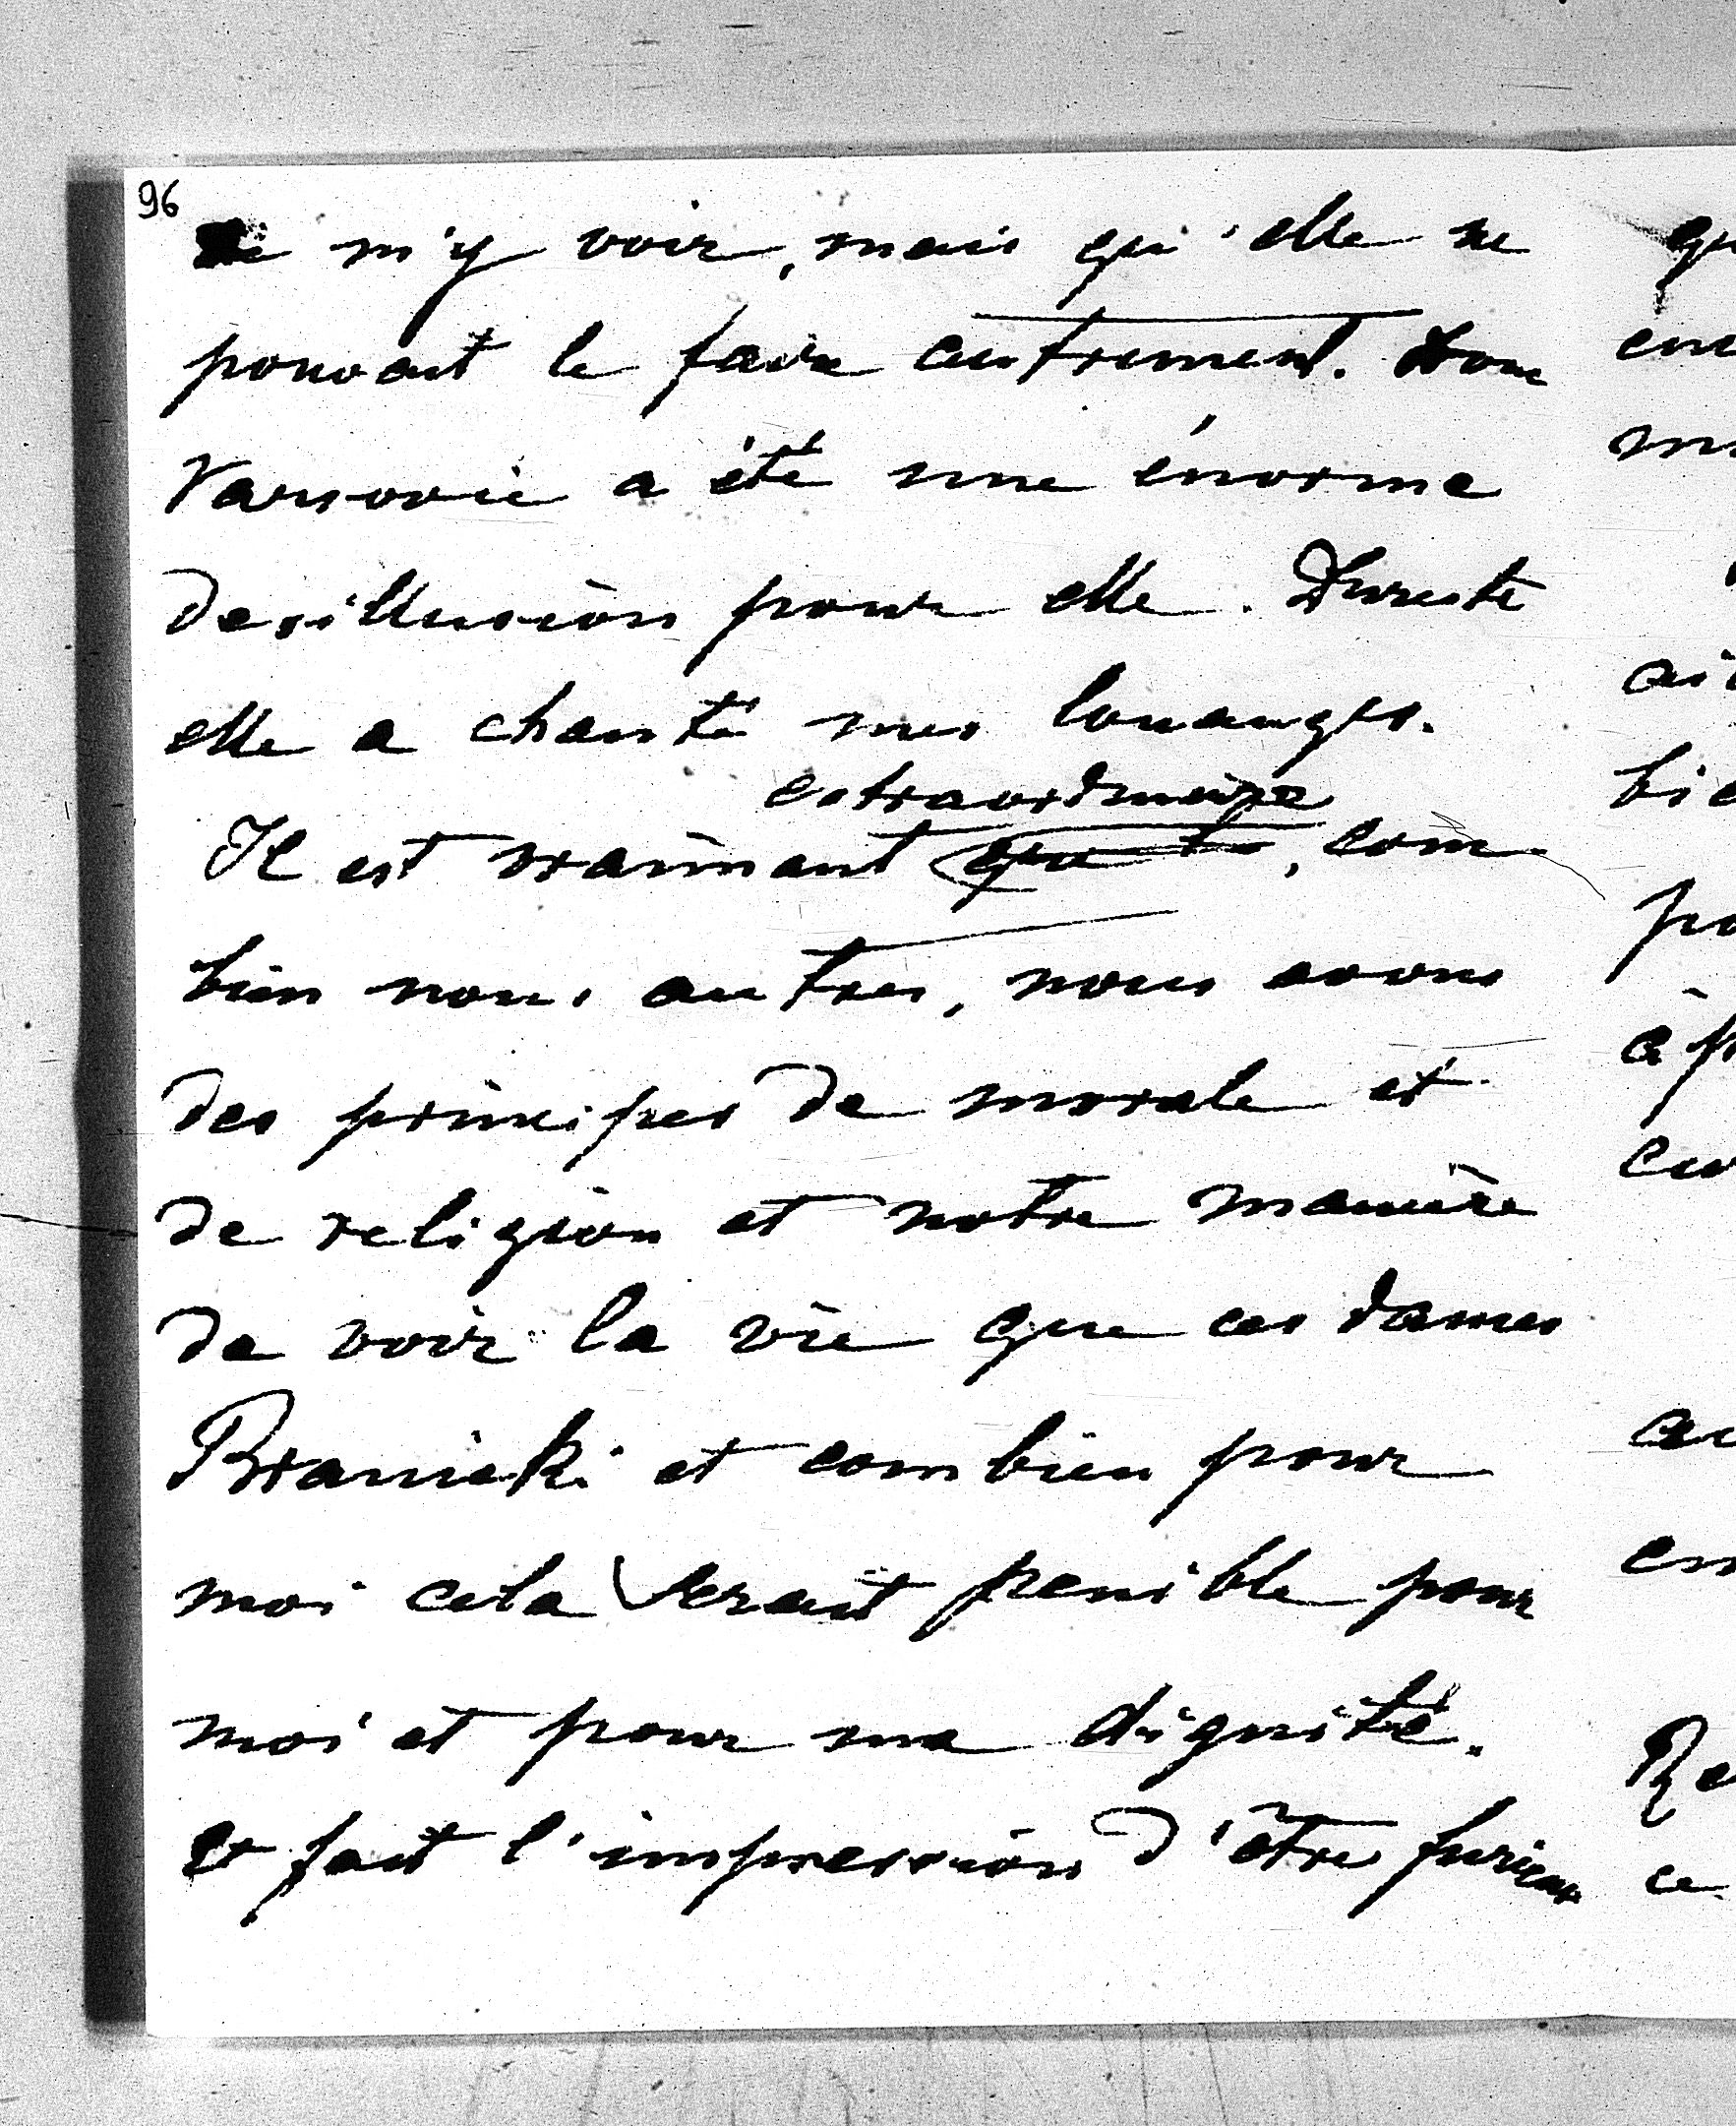 96
de m'y voir, mais qu'elle ne
pouvait le faire autrement. Donc
Varsovie a été une énorme
desillusion pour elle. Ensuite
elle a chanté mes louanges.
extraordinaire
Il est vraimant , com
bien nous autres, nous avons
des principes de morale et
de religion et notre manière
de voir la vie que ces dames
Branicki et combien pour
moi cela serait penible pour
moi et pour ma dignité.
fait l'impression d'être furieux